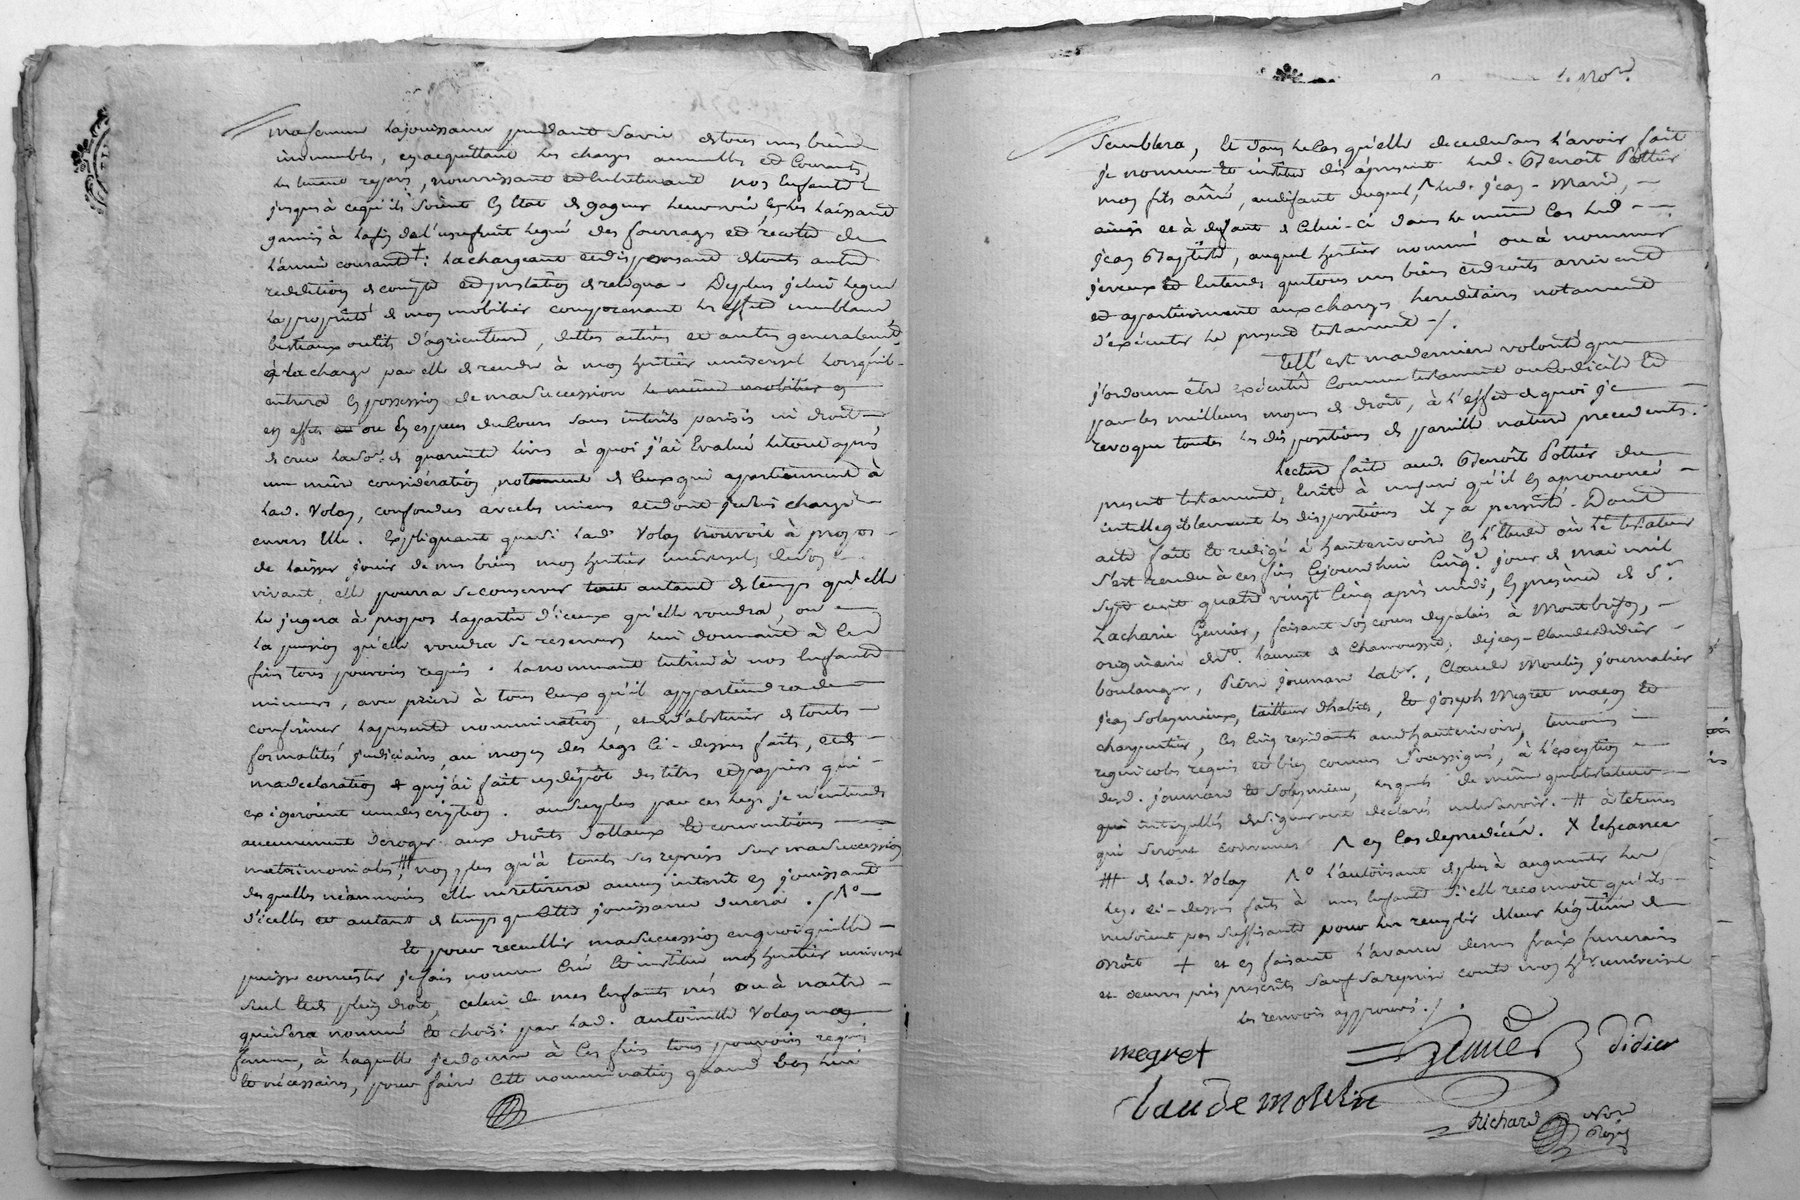 ma femme la jouissance pendant sa vie de tous mes biens
immeubles, en acquittant les charges annuelles et courantes
les tenant reparés, nourrissant et entretenant nos enfants
jusques à ce qu'ils soient en état de gagner leur vie, et les laissant
garnis à la fin de l'usufruit legué des fourrages et recolte de
l'année courante + : la chargeant et dispensant de toute autre
reddition de compte et prestation de reliqua. De plus je lui legue
la proprieté de mon mobilier comprenant les effets meublans
bestiaux outils d'agriculture, dettes actives et autres generalement
à la charge par elle de rendre à mon heritier universel lorsqu'il
entrera en possession de ma succession le même mobilier en
en effets et ou en especes du cours sans interêts parisis ni droit
de crue la so.e de quarante livres à quoi j'ai évalué le tout après
une mûre considération, notamment de ceux qui appartiennent à
lad. Volay, confondus avec les miens et dont je suis chargé
envers elle. Expliquant que si lad. Volay trouvoit à propos
de laisser jouir de mes biens mon heritier universel, de son
vivant, elle pourra se conserver tout autant de temps qu'elle
le jugera à propos la partie d'iceux qu'elle voudra, ou
la pension qu'elle voudra se reserver, lui donnant à ces
fins tous pouvoirs requis. La nommant tutrice à nos enfants
mineurs, avec prière à tous ceux qu'il appartiendra de
confirmer la presente nomination, et de s'abstenir de toutes
formalités judiciaires, au moyen des legs ci-dessus faits, et de
ma declaration que j'ai fait un dépôt des titres et papiers qui
exigeroient une description. Au surplus par ces legs je n'entends
aucunement deroger aux droits dottaux et conventions
matrimoniales, # non plus qu'à toutes ses reprises sur ma succession
desquelles néanmoins elle ne retirera aucun interêt en jouissant
d'icelles et autant de temps que cette jouissance durera. /. Λ°
Et pour recueillir ma succession en quoi qu'elle
puisse consister je fais nomme crée et institue mon heritier universel
seul et de plein droit, celui de mes enfants nés ou à naître
qui sera nommé et choisi par lad. antoinette Volay ma
femme, à laquelle je donne à ces fins tous pouvoirs requis
et nécessaires, pour faire cette nomination quand bon lui
Semblera, Et dans le cas qu'elle decede sans l'avoir fait
je nomme et institue dès àpresent led. Benoît Pottier
mon fils aîné, au defaut duquel, Λ led. jean-Marie,
ainsi et à defaut de celui-ci dans le même cas led.
jean Baptiste, auquel heritier nommé ou à nommer
je veux et entends que tous mes biens et droits arrivent
et appartiennent aux charges hereditaires notamment
d'exécuter le present testament ./.
Telle est ma derniere volonté que
j'ordonne être exécutée comme testament ou codicile et
par les meilleurs moyens de droit, à l'effet de quoi je
revoque toutes les dispositions de pareille nature precedentes.
Lecture faite aud. Benoît Pottier du
present testament, écrit à mesure qu'il en a prononcé
intelligiblement les dispositions il y a persisté. Dont
acte fait et redigé à hauterivoire en l'étude où le testateur
s'est rendu à ces fins cejourd'hui cinq.e jour de mai mil
sept cent quatre vingt cinq après midi, en présence de S.r
Zacharie Genier, faisant son cours de palais à Montbrison,
originaire de S.t Laurent de Chamousset, de jean-claude didier
boulanger, Pierre joumard lab.r, Claude Moulin journalier
jean Soleymieux, tailleur d'habits, et joseph Megret maçon et
charpentier, les cinq residants aud. hauterivoire, temoins
regnicoles requis et bien connus Soussignés, à l'exception
desd. joumard et Soleymieux, lesquels de même que le testateur
qui interpellés de signer ont déclaré ne le savoir. # à termes
qui seront convenus Λ en cas de predécés. X le
# de lad. Volay Λ° l'autorisant de plus à augmenter les
legs ci-dessus faits à mes enfants si elle reconnoit qu'ils
ne soient pas suffisants pour les remplir de leur légitime de
droit + et en faisant l'avance de mes fraix funeraires
et œuvres pies prescrits sauf sa reprise contre mon h.er universel
les renvois approuvés. /
megret
Genier
didier
Claude moulin
Richard
not.re
Royal